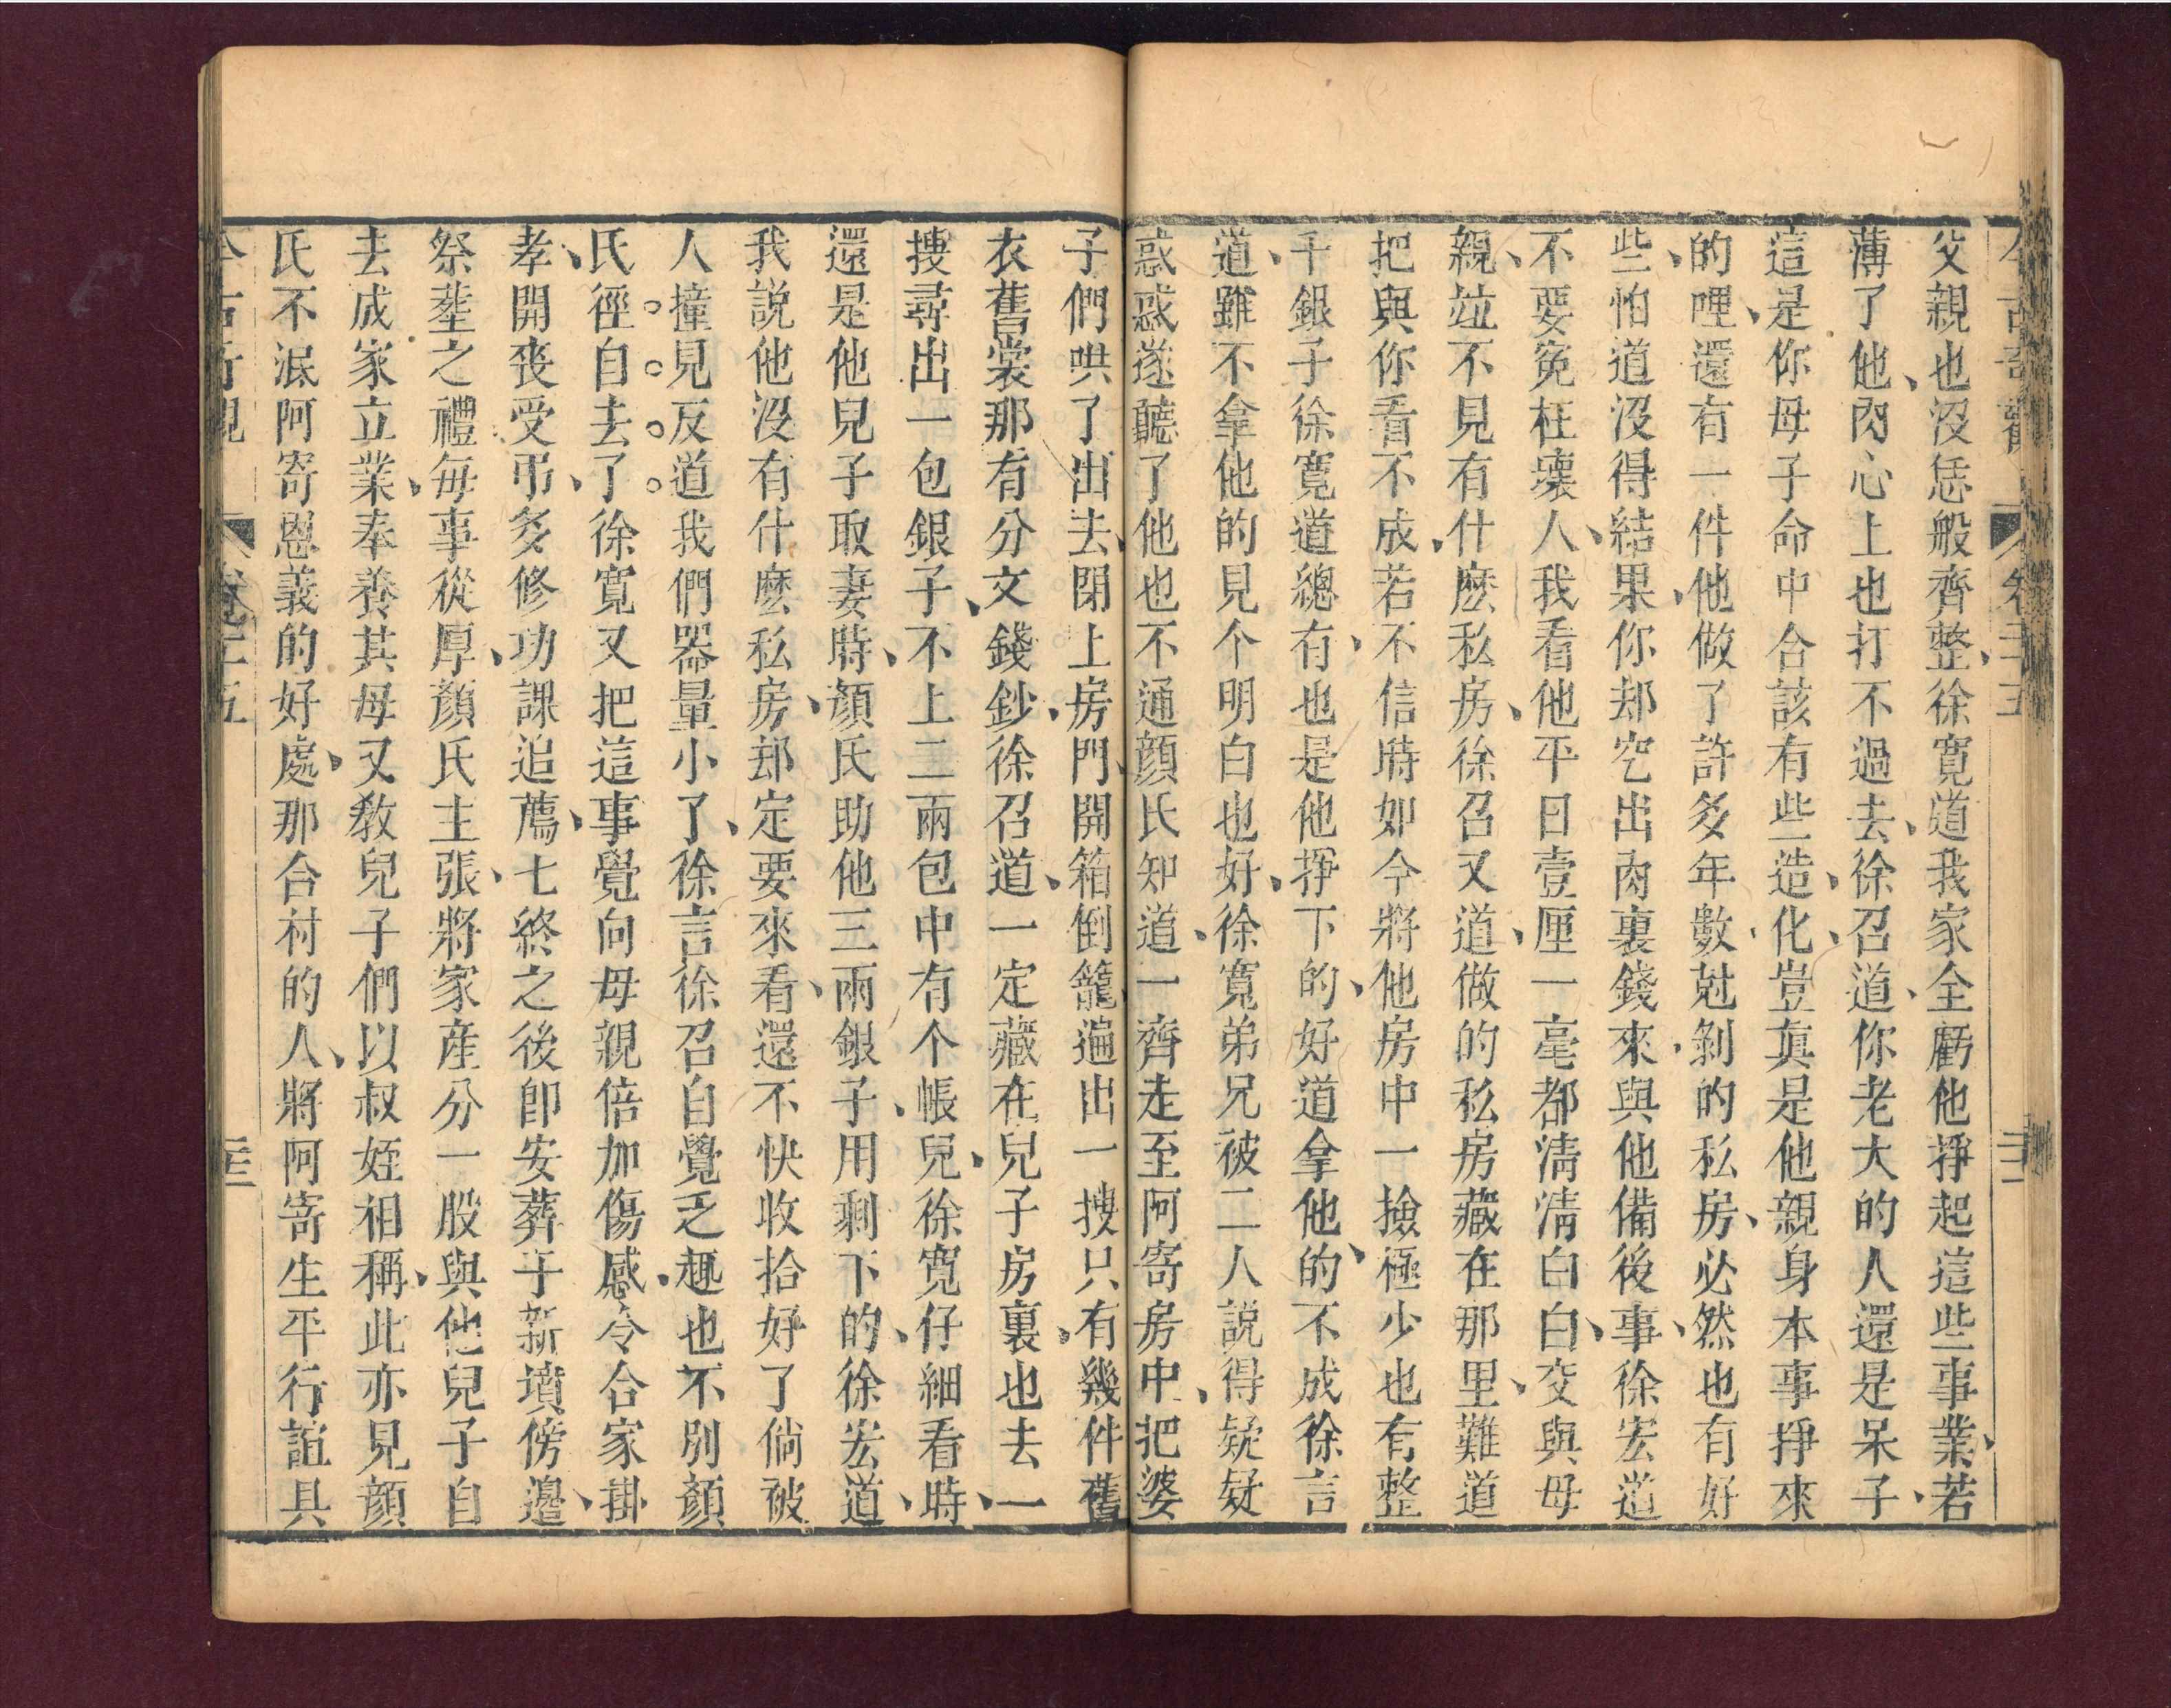 父親也沒恁般齊整、徐寬道我家全虧他掙起這些事業、若
薄了他、肉心上也打不過去、徐召道、你老大的人還是呆子、
這是你母子命中合該有些造化、豈真是他親身本事掙來
的哩、還有一件他做了許多年數、尅剝的私房、必然也有好
些、怕道沒得結果、你却空出肉裏錢來、與他備後事、徐宏道
不要寃枉壞人、我看他平日壹厘一毫都清清白白、交與母
親、竝不見有什麽私房、徐召又道、做的私房藏在那里、難道
把與你看不成、若不信時如今將他房中一撿極少也有整
千銀子徐寬道總有、也是他掙下的、好道拿他的不成徐言
道、雖不拿他的見个明白也好、徐寬弟兄被二人説得疑疑
惑惑遂聽了他也不通顔氏知道、一齊走至阿寄房中、把婆
子們哄了出去、閉上房門、開箱倒籠、遍出一搜只有幾件舊
衣舊裳那有分文錢鈔、徐召道、一定藏在兒子房裏、也去一
搜尋出一包銀子、不上二兩包中有个帳兒、徐寬仔細看時、
還是他兒子取妻時、顔氏助他三兩銀子、用剩下的、徐宏道、
我説他沒有什麽私房、却定要來看、還不快收拾好了倘被
人撞見反道我們器量小了、徐言徐召自覺乏趣也不別顔
氏徑自去了徐寬又把這事覺向母親倍加傷感、令合家掛
孝、開喪受弔、多修功課追薦、七終之後卽安葬于新墳傍邊、
祭塟之禮每事從厚、顔氏主張、將家産分一股與他兒子自
去成家立業、奉養其母又教兒子們以叔姪相稱、此亦見顔
氏不泯阿寄恩義的好處、那合村的人、將阿寄生平行誼具
今古奇觀 卷二十五 二十三